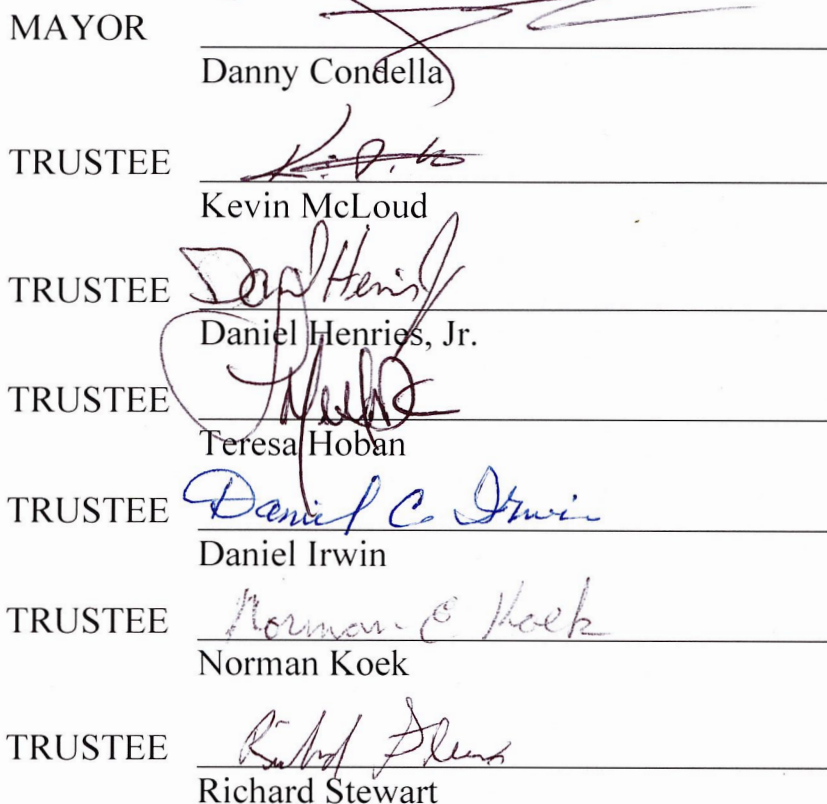 MAYOR
Danny Condella
TRUSTEE
Kevin McLoud
TRUSTEE Daniel Henries Jr
Daniel Henries, Jr.
TRUSTEE
Teresa Hoban
TRUSTEE Daniel C. Irwin
Daniel Irwin
TRUSTEE Norman C Koek
Norman Koek
TRUSTEE Richard Stewart
Richard Stewart